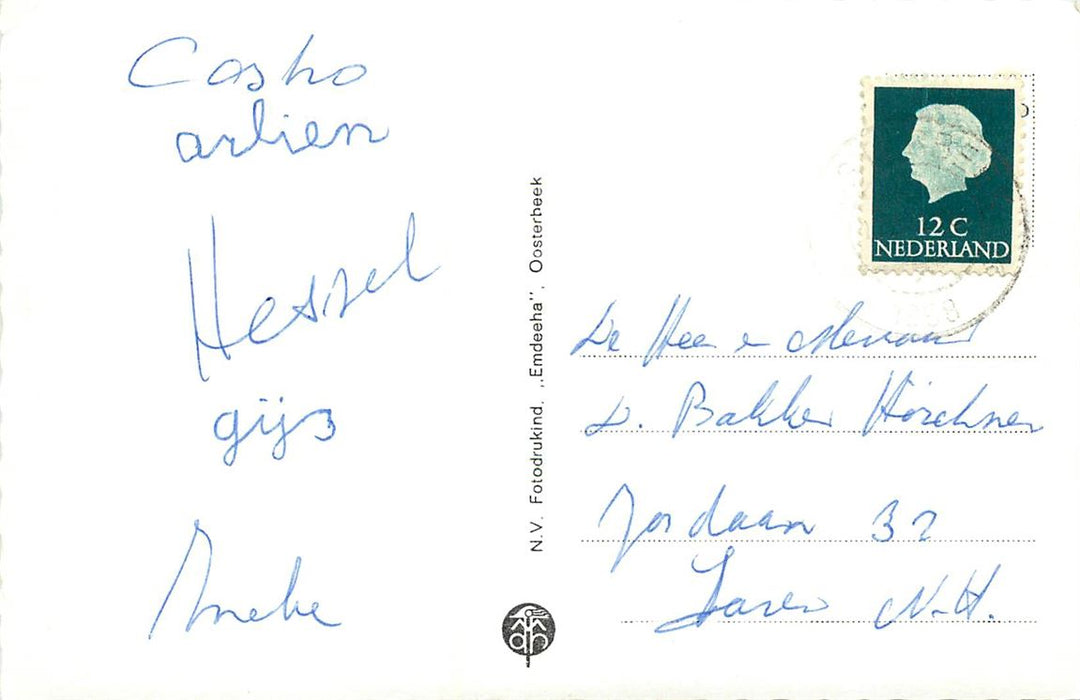 Casho
arlien
Hessel
gijs
Ineke
N.V. Fotodrukind. „Emdeeha”, Oosterbeek
12 C
NEDERLAND
De Heer en Mevrouw
D. Bakker
Jordaan 32
Laren N-H.